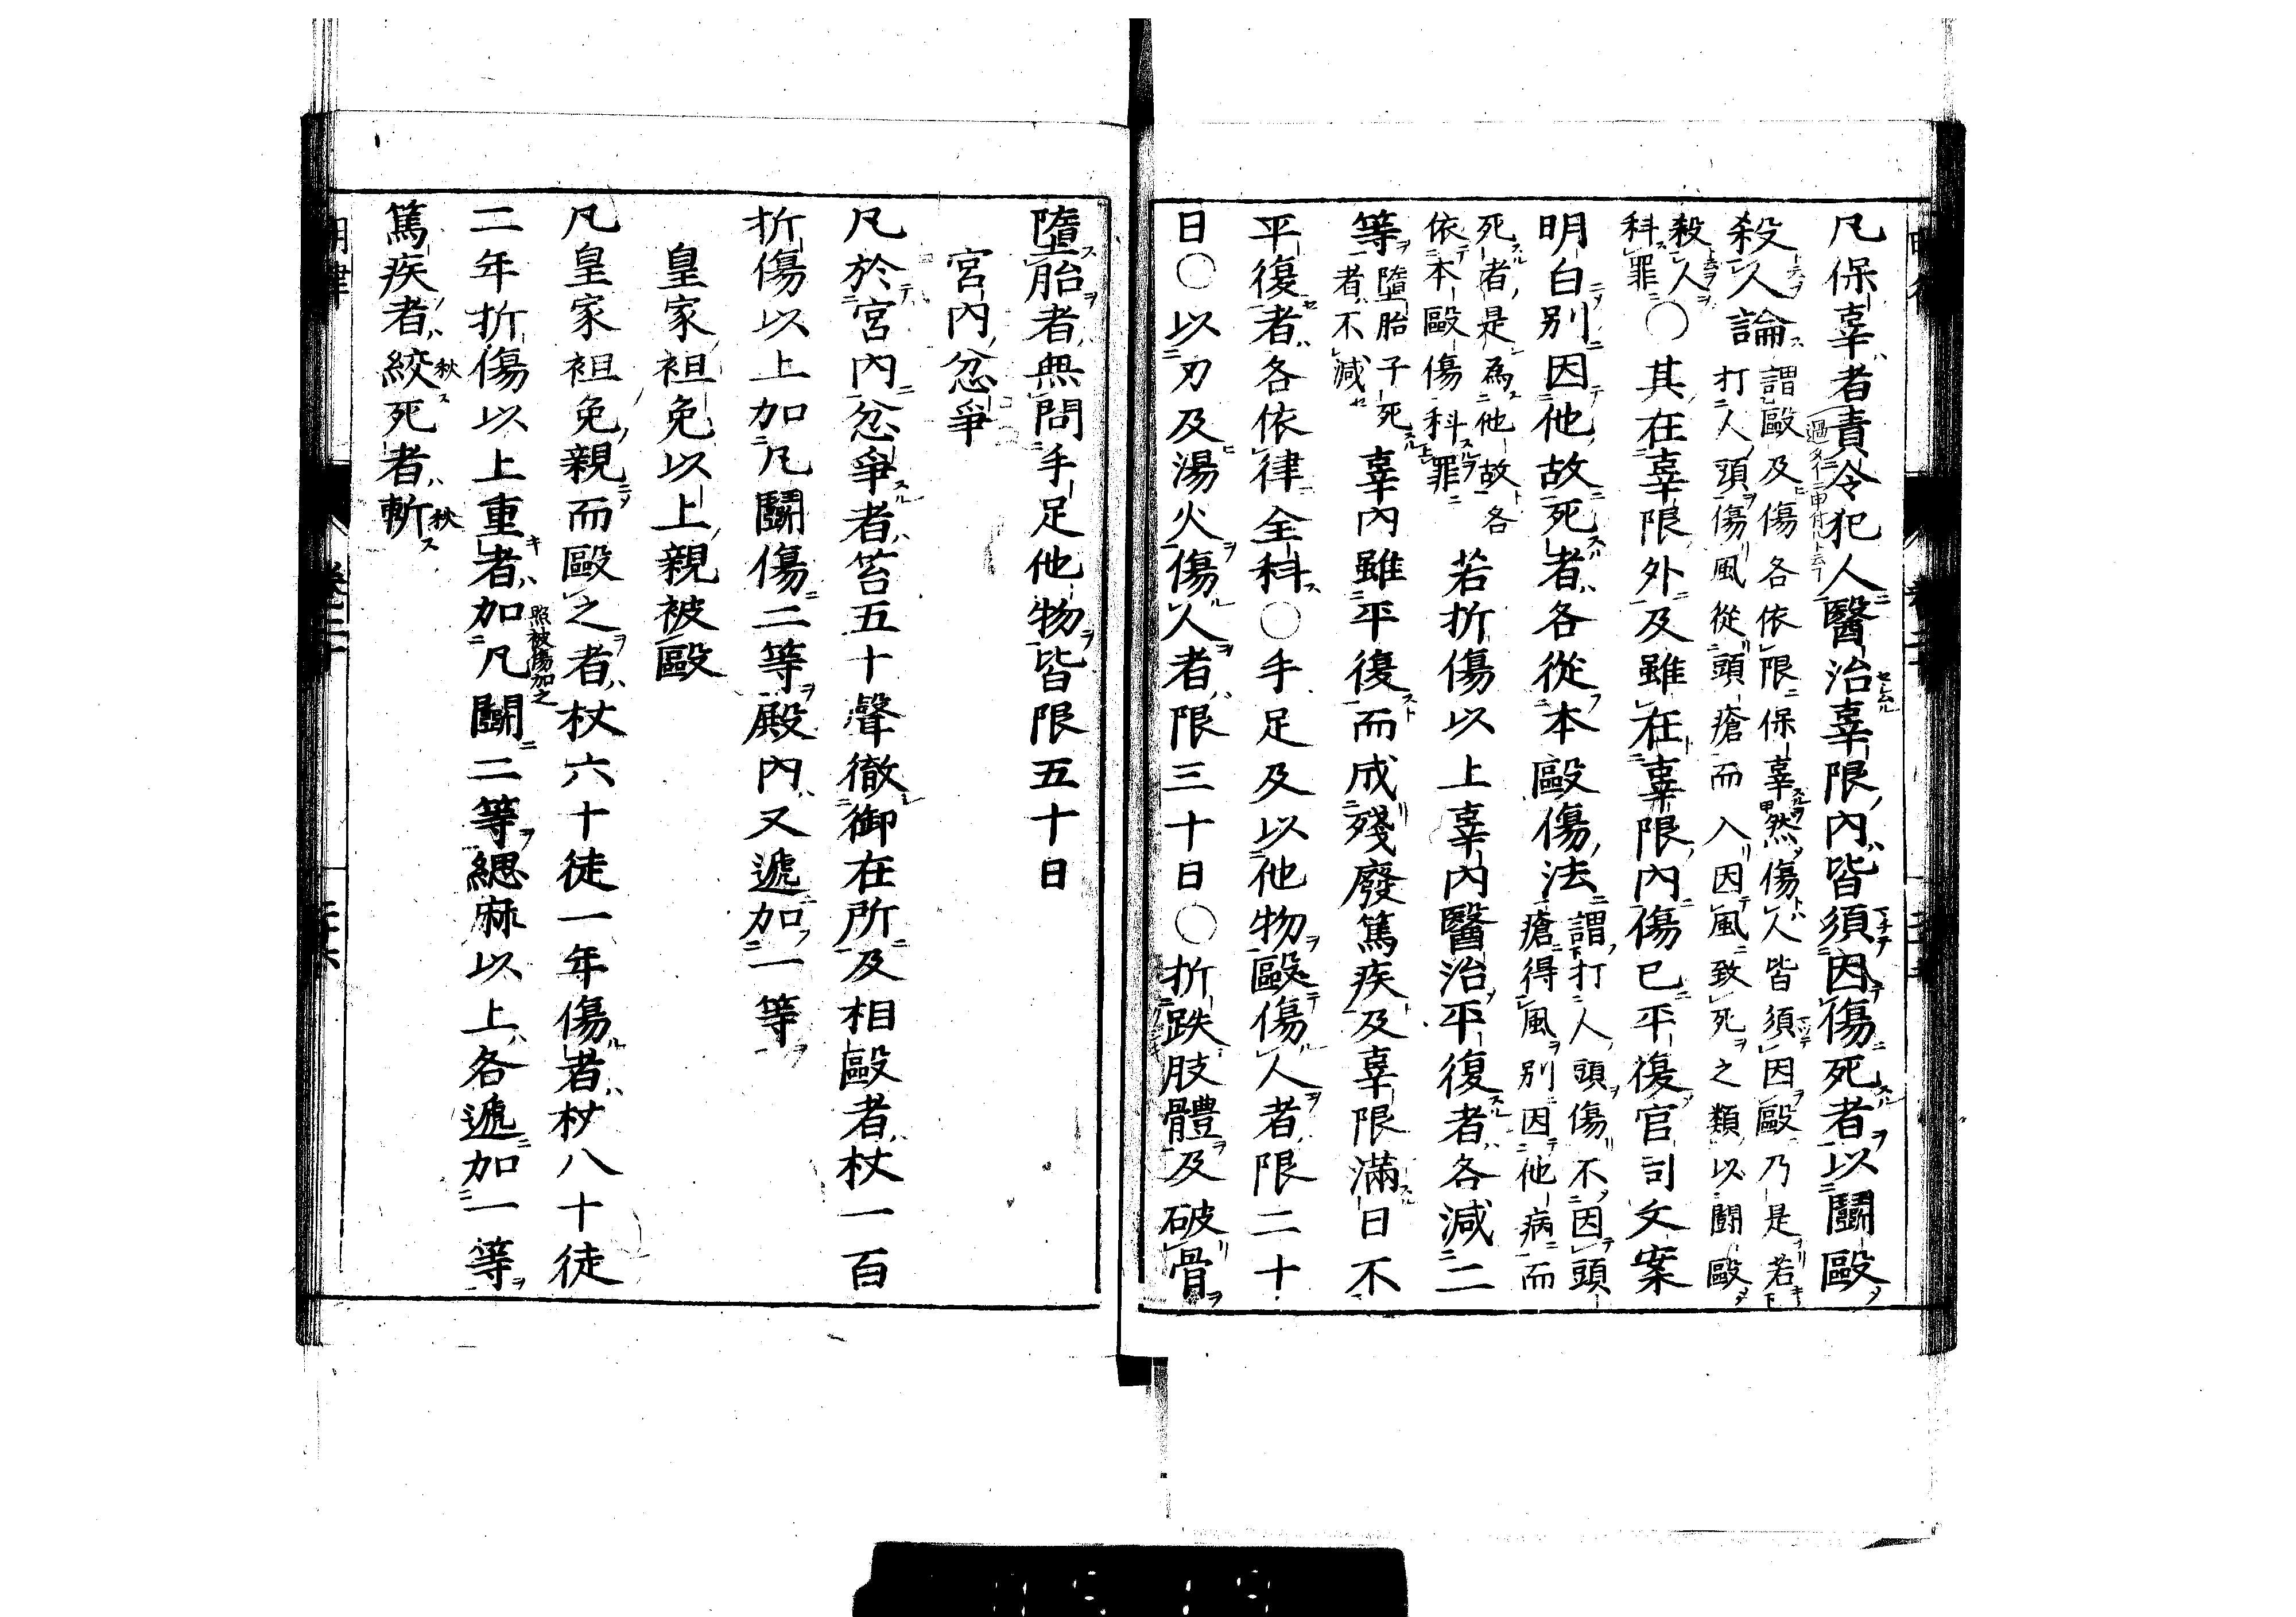 凡保辜者責令犯人醫治辜限內皆須因傷死者以鬬毆
殺人論
謂毆及傷各依限保辜然傷人皆須因毆乃是若
打人頭傷風從頭瘡而入因風致死之類以鬬毆
殺人
科罪
〇其在辜限外及雖在辜限內傷已平復官司文案
明白別因他故死者各從本毆傷法
謂打人頭傷不因頭
瘡得風別因他病而
死者是為他故各
依本毆傷科罪
若折傷以上辜內醫治平復者各減二
等
墮胎子死
者不減
辜內雖平復而成殘廢篤疾及辜限滿日不
平復者各依律全科〇手足及以他物毆傷人者限二十
日〇以刃及湯火傷人者限三十日〇折跌肢體及破骨
墮胎者無問手足他物皆限五十日
宮內忿爭
凡於宮內忿爭者笞五十聲徹御在所及相毆者杖一百
折傷以上加凡鬬傷二等殿內又遞加一等
皇家袒免以上親被毆
凡皇家袒免親而毆之者杖六十徒一年傷者杖八十徒
照被傷加之
二年折傷以上重者加凡鬬二等緦麻以上各遞加一等
篤疾者絞死者斬
秋
秋